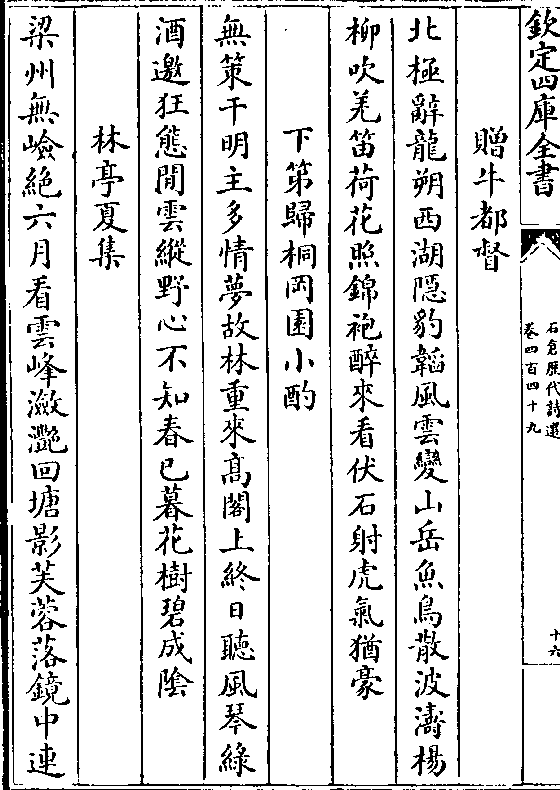 欽定四庫全書
石倉歷代詩選
卷四百四十九
十六
贈牛都督
北極辭龍朔西湖隱豹韜風雲變山岳魚鳥散波濤楊
柳吹羌笛荷花照錦袍醉來看伏石射虎氣猶豪
下第歸桐岡園小酌
無策干明主多情夢故林重來髙閣上終日聽風琴綠
酒邀狂態閒雲縱野心不知春已暮花樹碧成隂
林亭夏集
梁州無嶮絶六月看雲峰瀲灔回塘影芙蓉落鏡中連